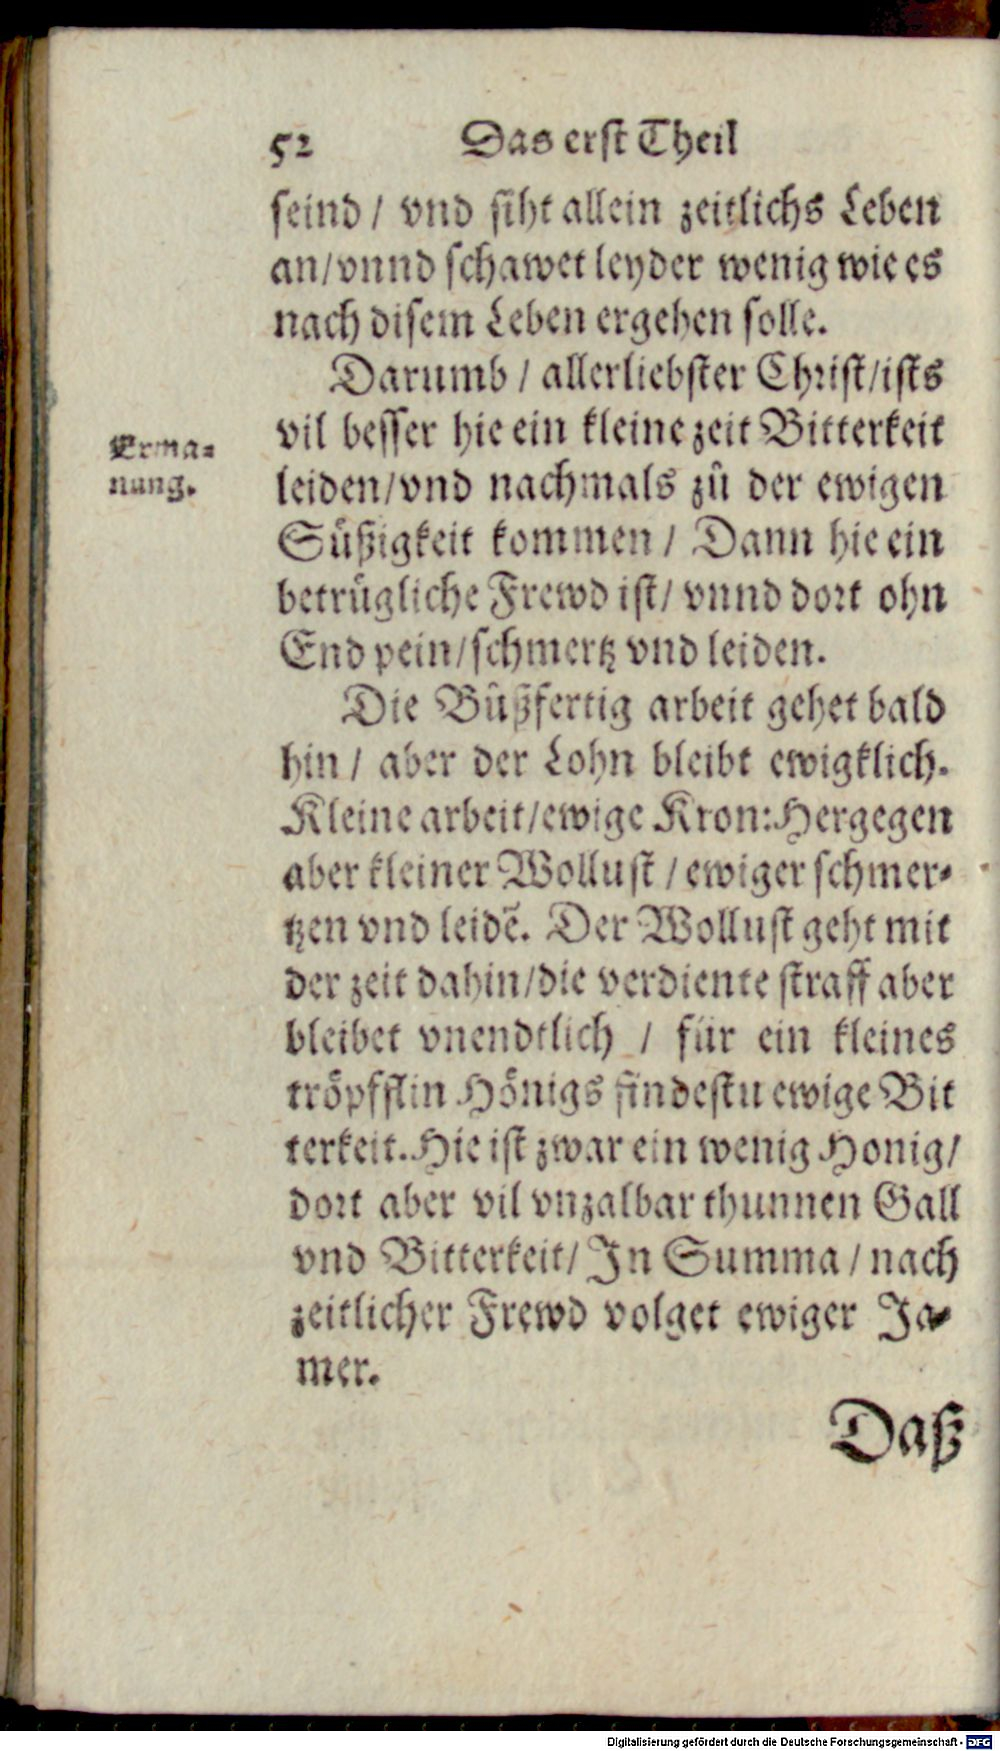 52 Das erst Theil
seind / vnd siht allein zeitlichs Leben
an/vnnd schawet leyder wenig wie es
nach disem Leben ergehen solle.
Darumb / allerliebster Christ/ists
vil besser hie ein kleine zeit Bitterkeit
Erma-
nung.
leiden/vnd nachmals zů der ewigen
Süßigkeit kommen / Dann hie ein
betrügliche Frewd ist/ vnnd dort ohn
End pein/schmertz vnd leiden.
Die Bůßfertig arbeit gehet bald
hin / aber der Lohn bleibt ewigklich.
Kleine arbeit/ewige Kron: Hergegen
aber kleiner Wollust / ewiger schmer-
tzen vnd leidē. Der Wollust geht mit
der zeit dahin/die verdiente straff aber
bleibet vnendtlich / für ein kleines
tröpfflin Hönigs findestu ewige Bit
terkeit. Hie ist zwar ein wenig Honig/
dort aber vil vnzalbar thunnen Gall
vnd Bitterkeit/ In Summa / nach
zeitlicher Frewd volget ewiger Ja-
mer.
Daß
Digitalisierung gefördert durch die Deutsche Forschungsgemeinschaft - DFG